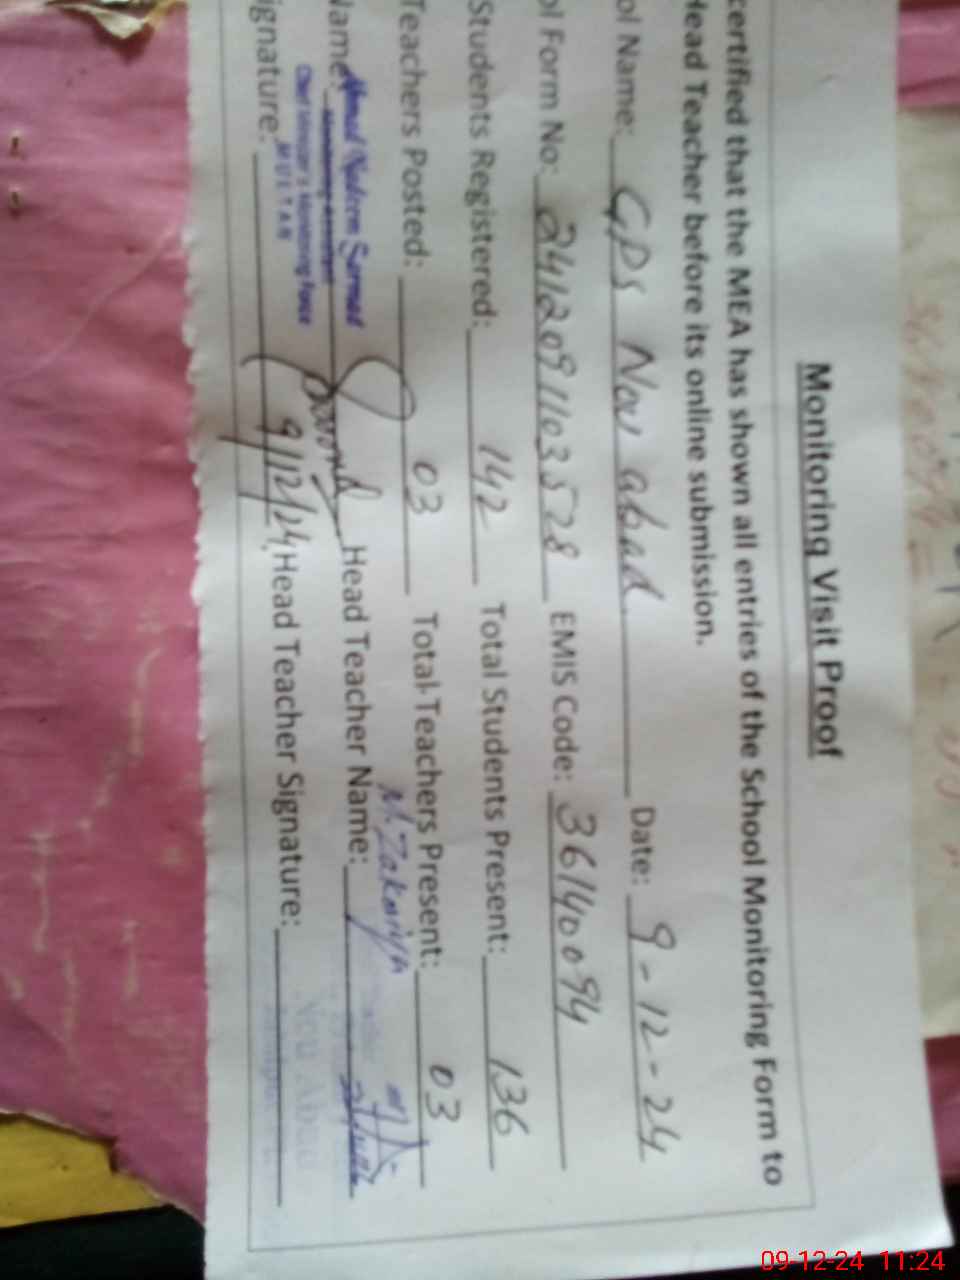 Monitoring Visit Proof
certified that the MEA has shown all entries of the School Monitoring Form to
Head Teacher before its online submission.
ol Name: GPS Nou abad Date: 9-12-24
ol Form No: 2412091103528 EMIS Code: 36140094
Students Registered: 142 Total Students Present: 136
Teachers Posted: 03 Total Teachers Present: 03
Name: Ahmad Nadeem Sarmad Head Teacher Name: M. Zakariya
Chief Minister's Monitoring Force
MULTAN
ignature: 9/12/24 Head Teacher Signature:
Nou Abad
09-12-24 11:24